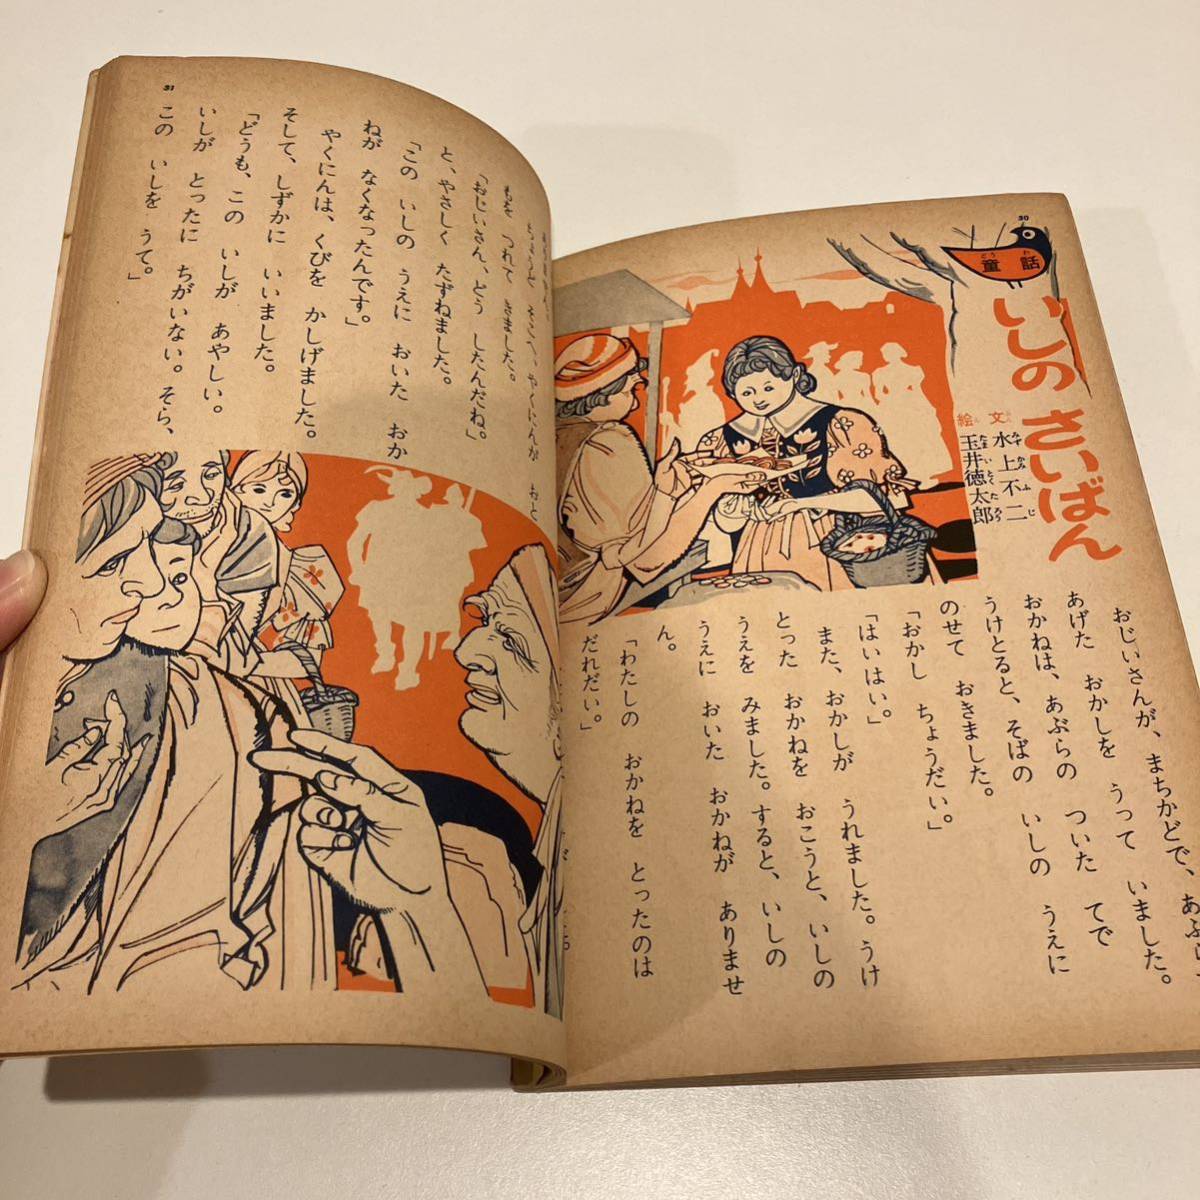 30
童話
どうわ
いしの さいばん
文 水上不二
絵 玉井徳太郎
おじいさんが、まちかどで、あぶらで
あげた おかしを うって いました。
おかねは、あぶらの ついた てで
うけとると、そばの いしの うえに
のせて おきました。
「おかし ちょうだい。」
「はいはい。」
また、おかしが うれました。うけ
とった おかねを おこうと、いしの
うえを みました。すると、いしの
うえに おいた おかねが ありませ
ん。
「わたしの おかねを とったのは
だれだい。」
31
ちょうど そこへ、やくにんが おと
もを つれて きました。
「おじいさん、どう したんだね。」
と、やさしく たずねました。
「この いしの うえに おいた おか
ねが なくなったんです。」
やくにんは、くびを かしげました。
そして、しずかに いいました。
「どうも、この いしが あやしい。
いしが とったに ちがいない。そら、
この いしを うて。」